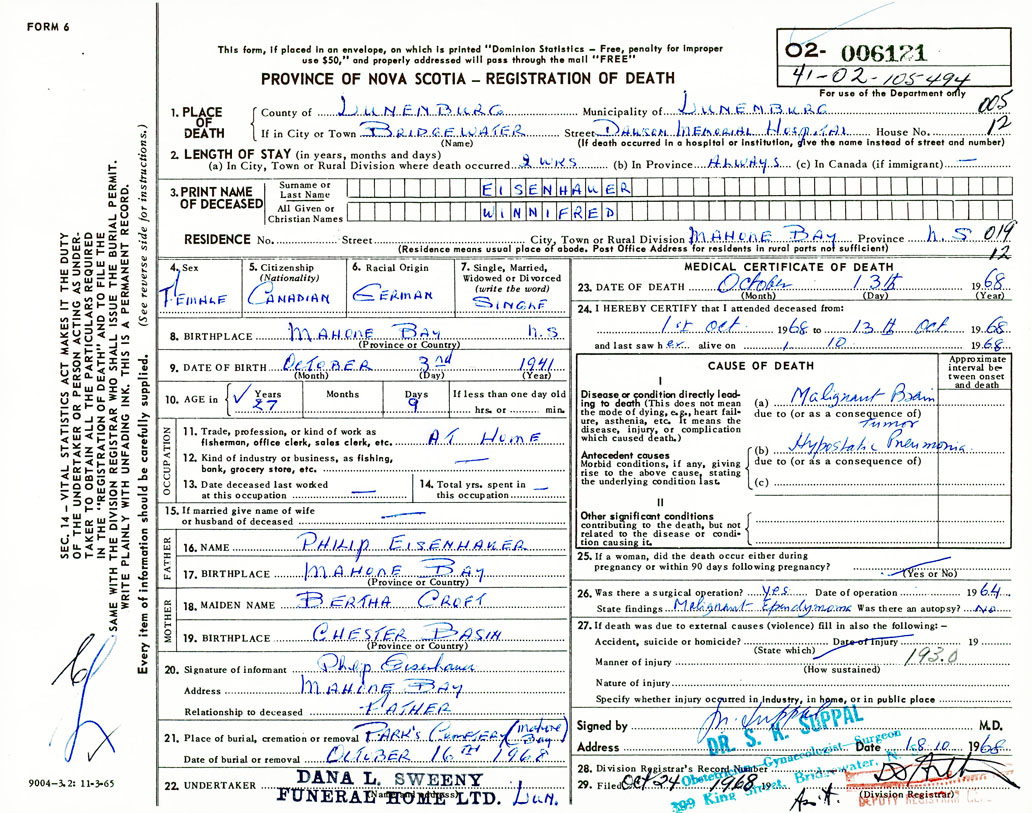 FORM 6
This form, if placed in an envelope, on which is printed "Dominion Statistics – Free, penalty for improper
use $50," and properly addressed will pass through the mail "FREE"
PROVINCE OF NOVA SCOTIA – REGISTRATION OF DEATH
02- 006121
41-02-105-494
For use of the Department only
005
12
1. PLACE OF DEATH
County of LUNENBURG Municipality of LUNENBURG
If in City or Town BRIDGEWATER Street DAWSON MEMORIAL HOSPITAL House No.
(Name) (If death occurred in a hospital or institution, give the name instead of street and number)
2. LENGTH OF STAY (in years, months and days)
(a) In City, Town or Rural Division where death occurred 2 WKS (b) In Province ALWAYS (c) In Canada (if immigrant) —
3. PRINT NAME OF DECEASED
Surname or Last Name EISENHAUER
All Given or Christian Names WINNIFRED
RESIDENCE No. Street City, Town or Rural Division MAHONE BAY Province N.S 019
(Residence means usual place of abode. Post Office Address for residents in rural parts not sufficient)
12
4. Sex FEMALE
5. Citizenship (Nationality) CANADIAN
6. Racial Origin GERMAN
7. Single, Married, Widowed or Divorced (write the word) SINGLE
8. BIRTHPLACE MAHONE BAY N.S
(Province or Country)
9. DATE OF BIRTH OCTOBER 3rd 1941
(Month) (Day) (Year)
10. AGE in Years 27 Months Days 9 If less than one day old hrs. or min.
OCCUPATION
11. Trade, profession, or kind of work as fisherman, office clerk, sales clerk, etc. AT HOME
12. Kind of industry or business, as fishing, bank, grocery store, etc. —
13. Date deceased last worked at this occupation —
14. Total yrs. spent in this occupation —
15. If married give name of wife or husband of deceased —
FATHER
16. NAME PHILIP EISENHAUER
17. BIRTHPLACE MAHONE BAY
(Province or Country)
MOTHER
18. MAIDEN NAME BERTHA CROFT
19. BIRTHPLACE CHESTER BASIN
(Province or Country)
20. Signature of informant Philip Eisenhauer
Address MAHONE BAY
Relationship to deceased FATHER
21. Place of burial, cremation or removal PARK'S CEMETERY (Mahone Bay)
Date of burial or removal OCTOBER 16TH 1968
22. UNDERTAKER DANA L. SWEENY
FUNERAL HOME LTD. LUN.
MEDICAL CERTIFICATE OF DEATH
23. DATE OF DEATH October 13th 1968
(Month) (Day) (Year)
24. I HEREBY CERTIFY that I attended deceased from:
1st Oct 1968 to 13th Oct 1968
and last saw her alive on 1 10 1968
CAUSE OF DEATH
Approximate interval between onset and death
I
Disease or condition directly leading to death (This does not mean the mode of dying, e.g., heart failure, asthenia, etc. It means the disease, injury, or complication which caused death.)
(a) Malignant Brain
due to (or as a consequence of)
Tumor
Antecedent causes
Morbid conditions, if any, giving rise to the above cause, stating the underlying condition last.
(b) Hypostatic Pneumonia
due to (or as a consequence of)
(c)
II
Other significant conditions
contributing to the death, but not related to the disease or condition causing it.
25. If a woman, did the death occur either during
pregnancy or within 90 days following pregnancy?
(Yes or No)
26. Was there a surgical operation? yes Date of operation 1964
State findings Malignant Ependymoma Was there an autopsy? No
27. If death was due to external causes (violence) fill in also the following: –
Accident, suicide or homicide? Date of Injury 19
(State which)
193.0
Manner of injury
(How sustained)
Nature of injury
Specify whether injury occurred in Industry, in home, or in public place
Signed by M.D.
DR. S. K. SUPPAL
Address Date 18.10 1968
Obstetrician-Gynaecologist-Surgeon
399 King Street, Bridgewater, N.
28. Division Registrar's Record Number
29. Filed Oct 24 1968
(Division Registrar)
DEPUTY REGISTRAR GEN.
Asst.
SEC. 14 – VITAL STATISTICS ACT MAKES IT THE DUTY
OF THE UNDERTAKER OR PERSON ACTING AS UNDER-
TAKER TO OBTAIN ALL THE PARTICULARS REQUIRED
IN THE "REGISTRATION OF DEATH" AND TO FILE THE
SAME WITH THE DIVISION REGISTRAR WHO SHALL ISSUE THE BURIAL PERMIT.
WRITE PLAINLY WITH UNFADING INK. THIS IS A PERMANENT RECORD.
Every item of information should be carefully supplied. (See reverse side for instructions.)
9004-3.2: 11-3-65